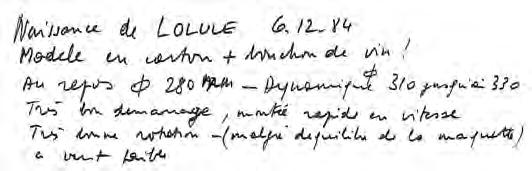 Naissance de LOLULE 6.12.84
Modèle en carton + bouchon de vin !
Au repos φ 280 mm - Dynamique φ 310 jusqu'à 330
Très bon demarrage, montée rapide en vitesse
Très bonne rotation - (malgré dequilibre de la maquette)
a vent faible